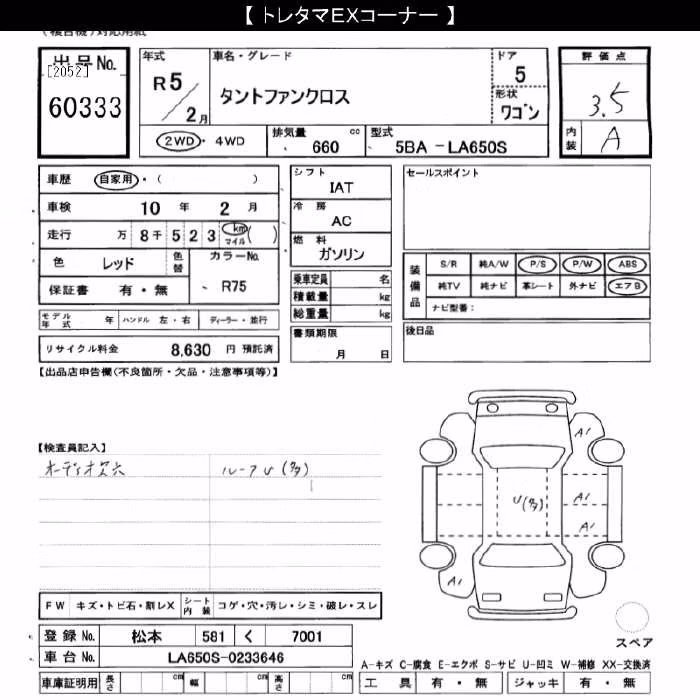 【 トレタマEXコーナー 】
(複合機)対応用紙
出品No.
[2052]
60333
年式
R5
2月
車名・グレード
タントファンクロス
ドア
5
形状
ワゴン
2WD・4WD
排気量 660 cc
型式 5BA -LA650S
評価点
3.5
内装 A
車歴 自家用・( )
車検 10 年 2 月
走行 万 8千523 km マイル ( )
色 レッド 色替
カラーNo.
R75
保証書 有・無
モデル年式 年 ハンドル 左・右 ディーラー・並行
リサイクル料金 8,630 円 預託済
シフト
IAT
冷房
AC
燃料
ガソリン
乗車定員 名
積載量 kg
総重量 kg
書類期限
月 日
セールスポイント
装備品
S/R 純A/W P/S P/W ABS
純TV 純ナビ 革シート 外ナビ エアB
ナビ型番:
後日品
【出品店申告欄(不良箇所・欠品・注意事項等)】
【検査員記入】
オーディオ欠穴
ルーフU(多)
A1
U(多)
A1
A1
A1
FW キズ・トビ石・割レX
シート内装 コゲ・穴・汚レ・シミ・破レ・スレ
スペア
登録No. 松本 581 く 7001
車台No. LA650S-0233646
A-キズ C-腐食 E-エクボ S-サビ U-凹ミ W-補修 XX-交換済
車庫証明用 長さ cm 幅 cm 高さ cm
工具 有・無 ジャッキ 有・無